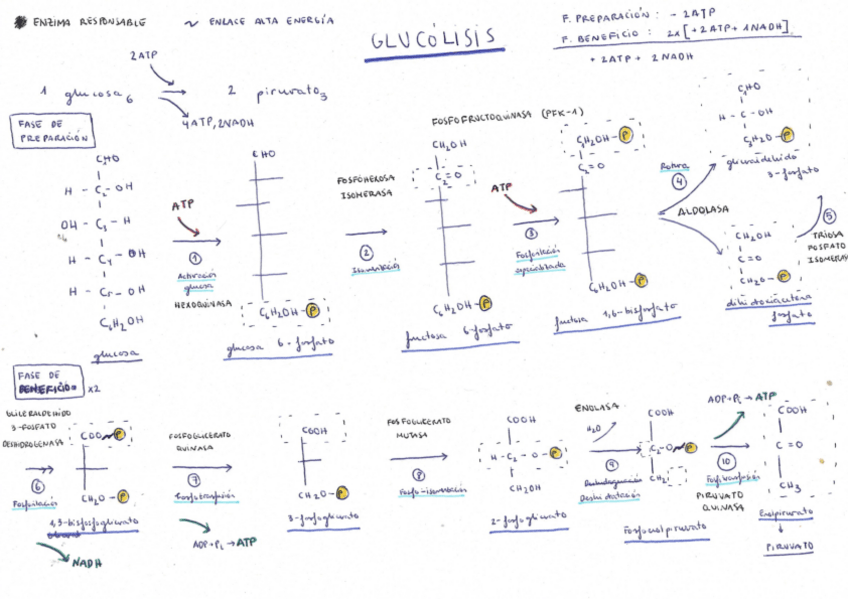 ENZIMA RESPONSABLE
~ ENLACE ALTA ENERGÍA
GLUCÓLISIS
F. PREPARACIÓN: - 2ATP
F. BENEFICIO: 2x[+2ATP+1NADH]
+2ATP + 2NADH
2ATP
1 glucosa6 → 2 piruvato3
4ATP, 2NADH
FASE DE
PREPARACIÓN
CHO
H - C2 - OH
OH - C3 - H
H - C4 - OH
H - C5 - OH
C6H2OH
glucosa
ATP
1
Activación
glucosa
HEXOQUINASA
CHO
C6H2OH - P
glucosa 6-fosfato
FOSFOHEXOSA
ISOMERASA
2
Isomerización
FOSFOFRUCTOQUINASA (PFK-1)
CH2OH
C2=O
C6H2OH - P
fructosa 6-fosfato
ATP
3
Fosforilación
especializada
C1H2OH - P
C2=O
C6H2OH - P
fructosa 1,6-bisfosfato
Rotura
4
ALDOLASA
CHO
H - C - OH
C3H2O - P
gliceraldehído
3-fosfato
5
TRIOSA
FOSFATO
ISOMERASA
CH2OH
C=O
CH2O - P
dihidroxiacetona
fosfato
FASE DE
BENEFICIO x2
GLICERALDEHIDO
3-FOSFATO
DESHIDROGENASA
6
Fosforilación
NADH
COO~P
CH2O - P
1,3-bisfosfoglicerato
FOSFOGLICERATO
QUINASA
7
ADP+Pi→ATP
COOH
CH2O - P
3-fosfoglicerato
FOSFOGLICERATO
MUTASA
8
Fosfo-isomerización
COOH
H - C2 - O - P
CH2OH
2-fosfoglicerato
ENOLASA
H2O
9
Deshidratación
COOH
C2-O~P
CH2
Fosfoenolpiruvato
ADP+Pi→ATP
10
PIRUVATO
QUINASA
COOH
C=O
CH3
Enolpiruvato
↓
PIRUVATO